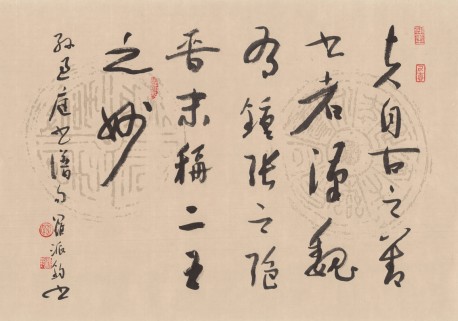 夫自古之善
書者漢魏
有鍾張之絕
晉末稱二王
之妙
孫過庭書譜句羅派鈞書